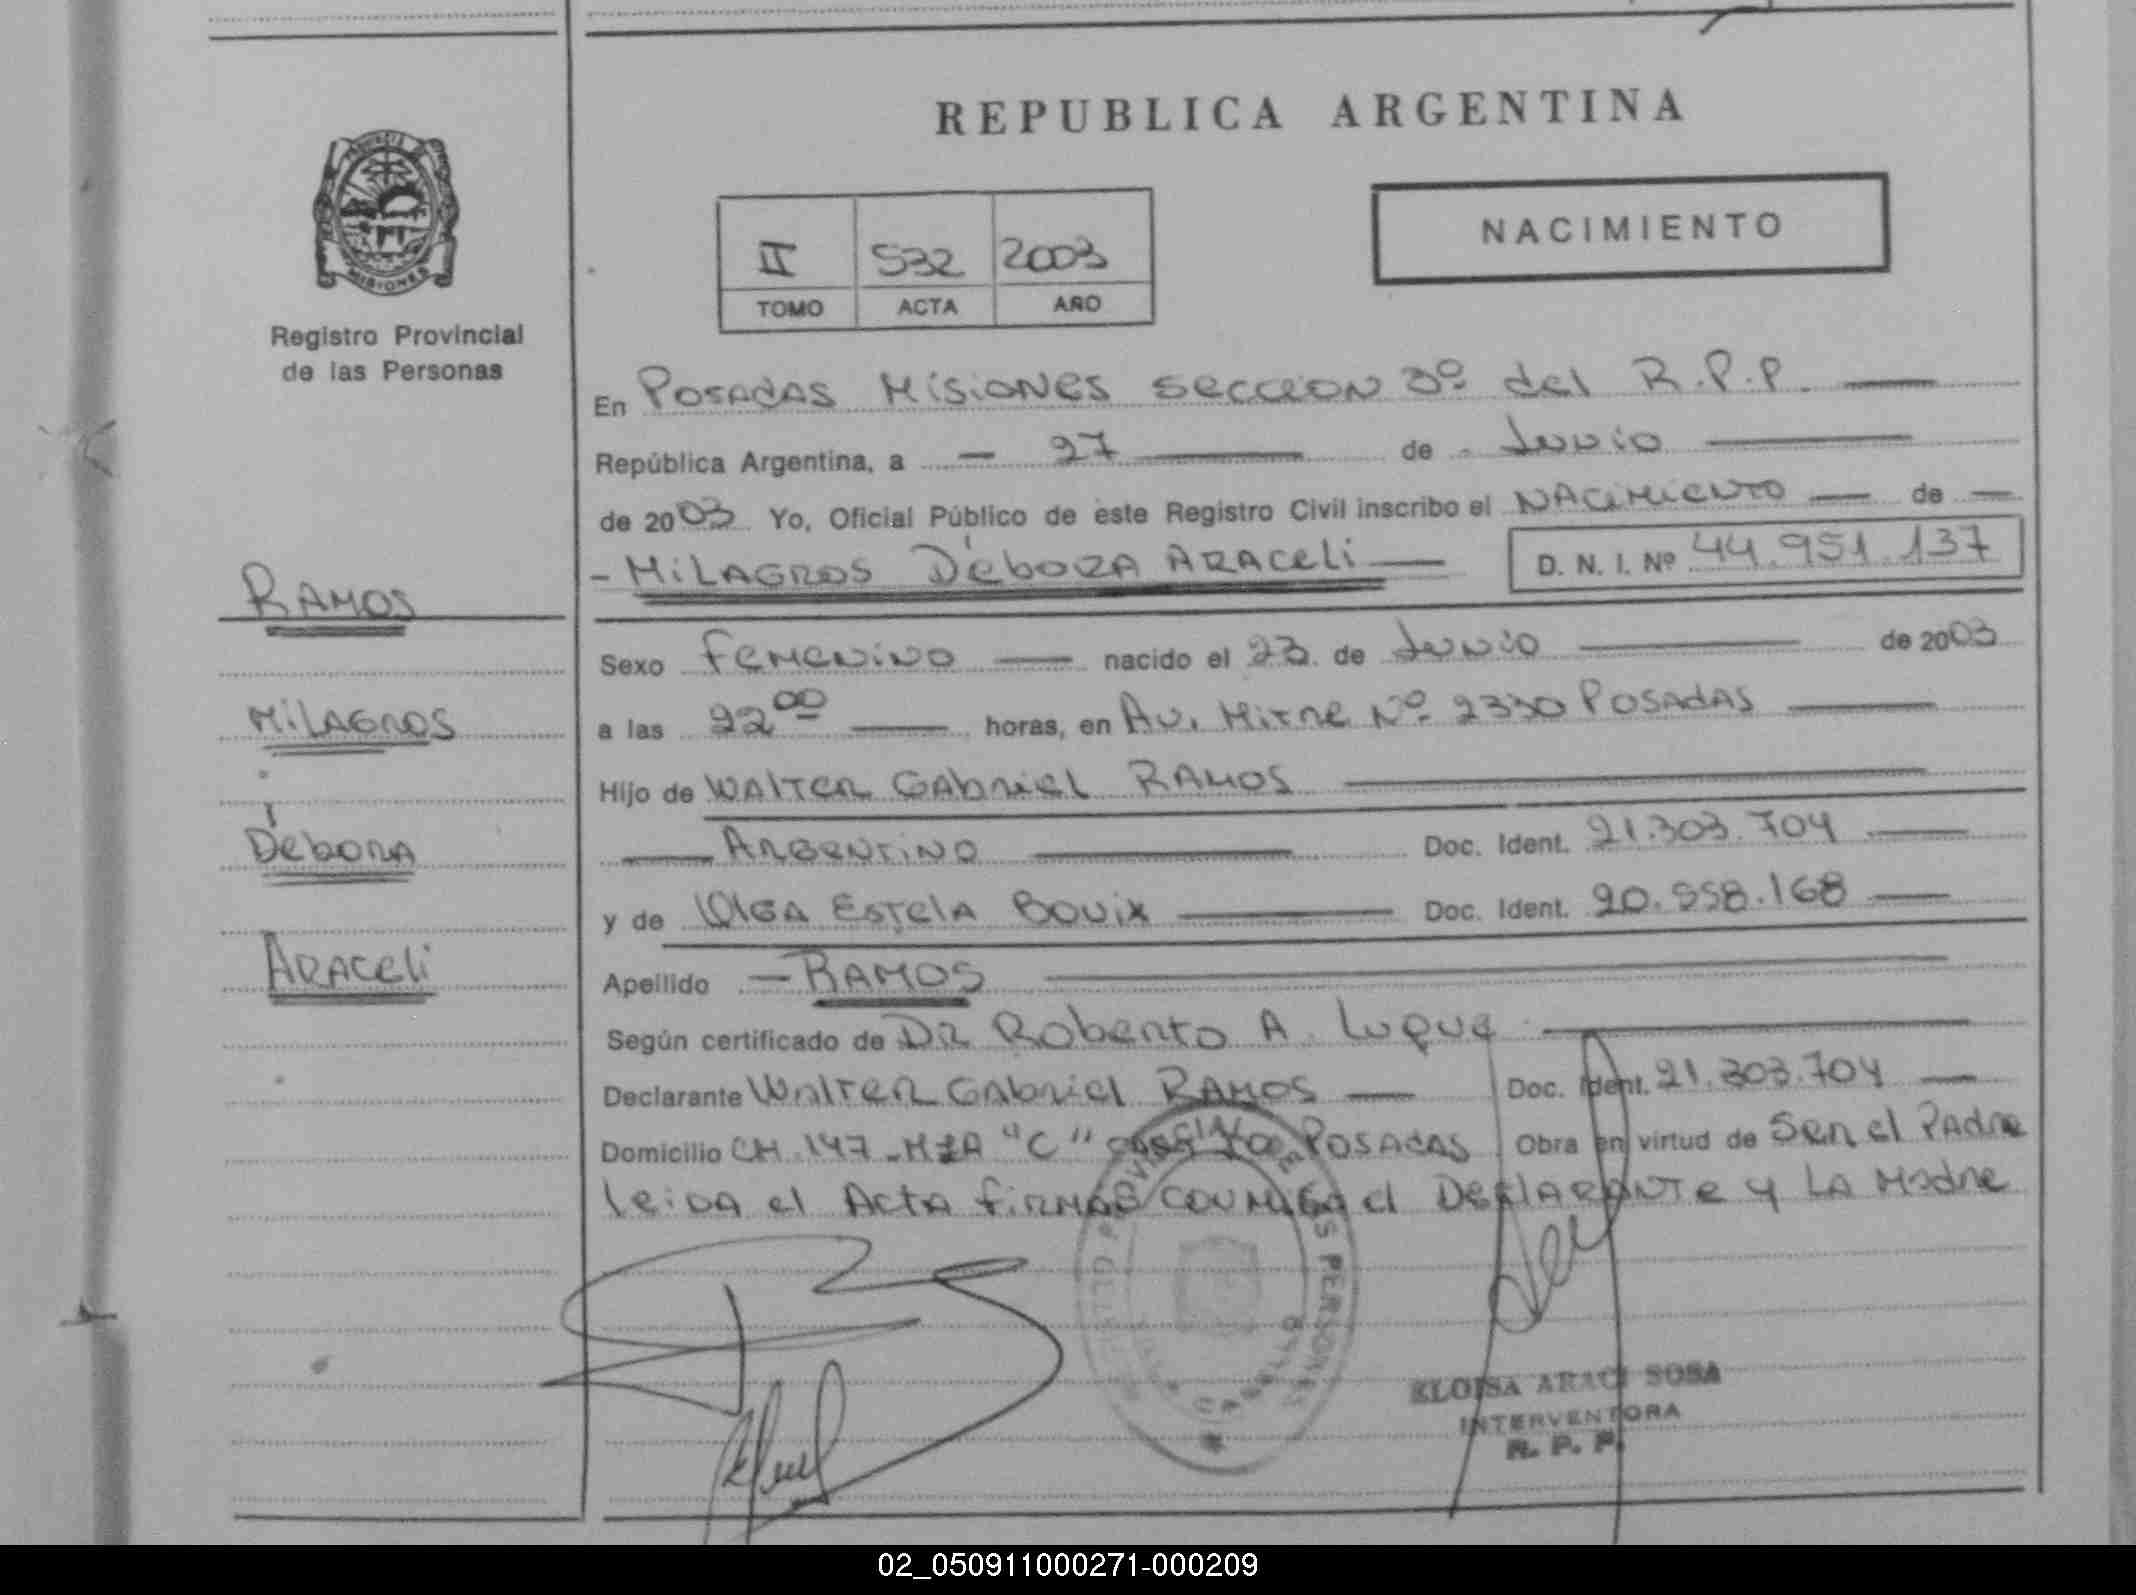 REPUBLICA ARGENTINA
NACIMIENTO
II 532 2003
TOMO ACTA AÑO
PROVINCIA DE MISIONES
Registro Provincial
de las Personas
En Posadas Misiones seccion 3º del R.P.P.
República Argentina, a 27 de Junio
de 2003 Yo, Oficial Público de este Registro Civil inscribo el Nacimiento de
Milagros Débora Araceli D. N. I. Nº 44.951.137
Ramos
Milagros
Débora
Araceli
Sexo Femenino nacido el 23 de Junio de 2003
a las 22 00 horas, en Av. Mitre Nº 2330 Posadas
Hijo de Walter Gabriel Ramos
Argentino Doc. Ident. 21.303.704
y de Olga Estela Bouix Doc. Ident. 20.558.168
Apellido Ramos
Según certificado de DR Roberto A. Luque
Declarante Walter Gabriel Ramos Doc. Ident. 21.303.704
Domicilio CH. 147 - MZA "C" Posadas Obra en virtud de Ser el Padre
Leida el Acta firman conmigo el Declarante y la Madre
ELOISA ARACI SOSA
INTERVENTORA
R. P. P.
02_050911000271-000209